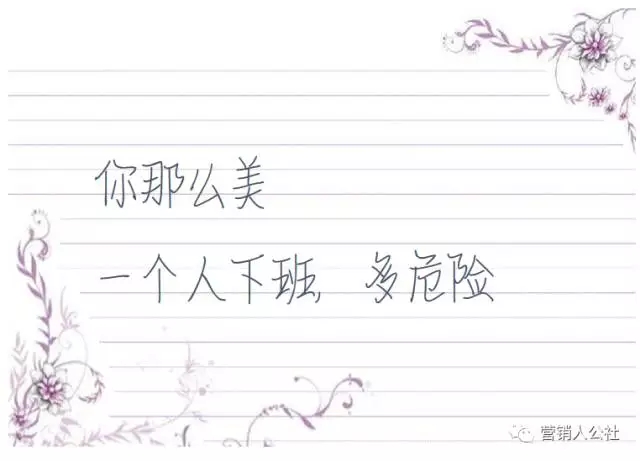 你那么美
一个人下班,多危险
营销人公社